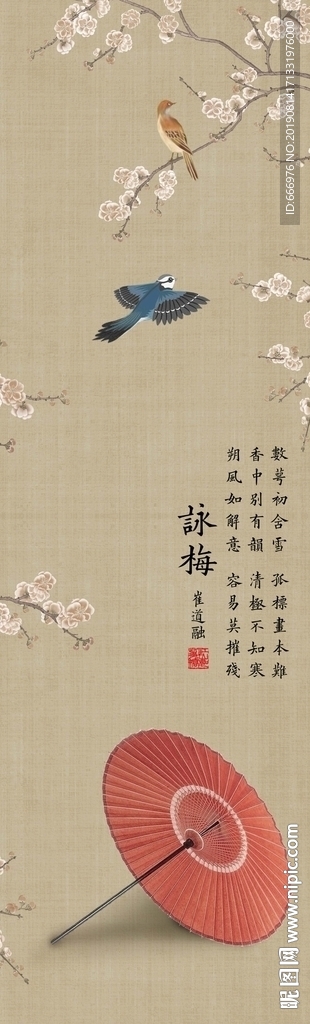 數萼初含雪 孤標畫本難
香中別有韻 清極不知寒
朔風如解意 容易莫摧殘
詠梅
崔道融
ID:666976 NO:20190814171331976000
昵图网 www.nipic.com